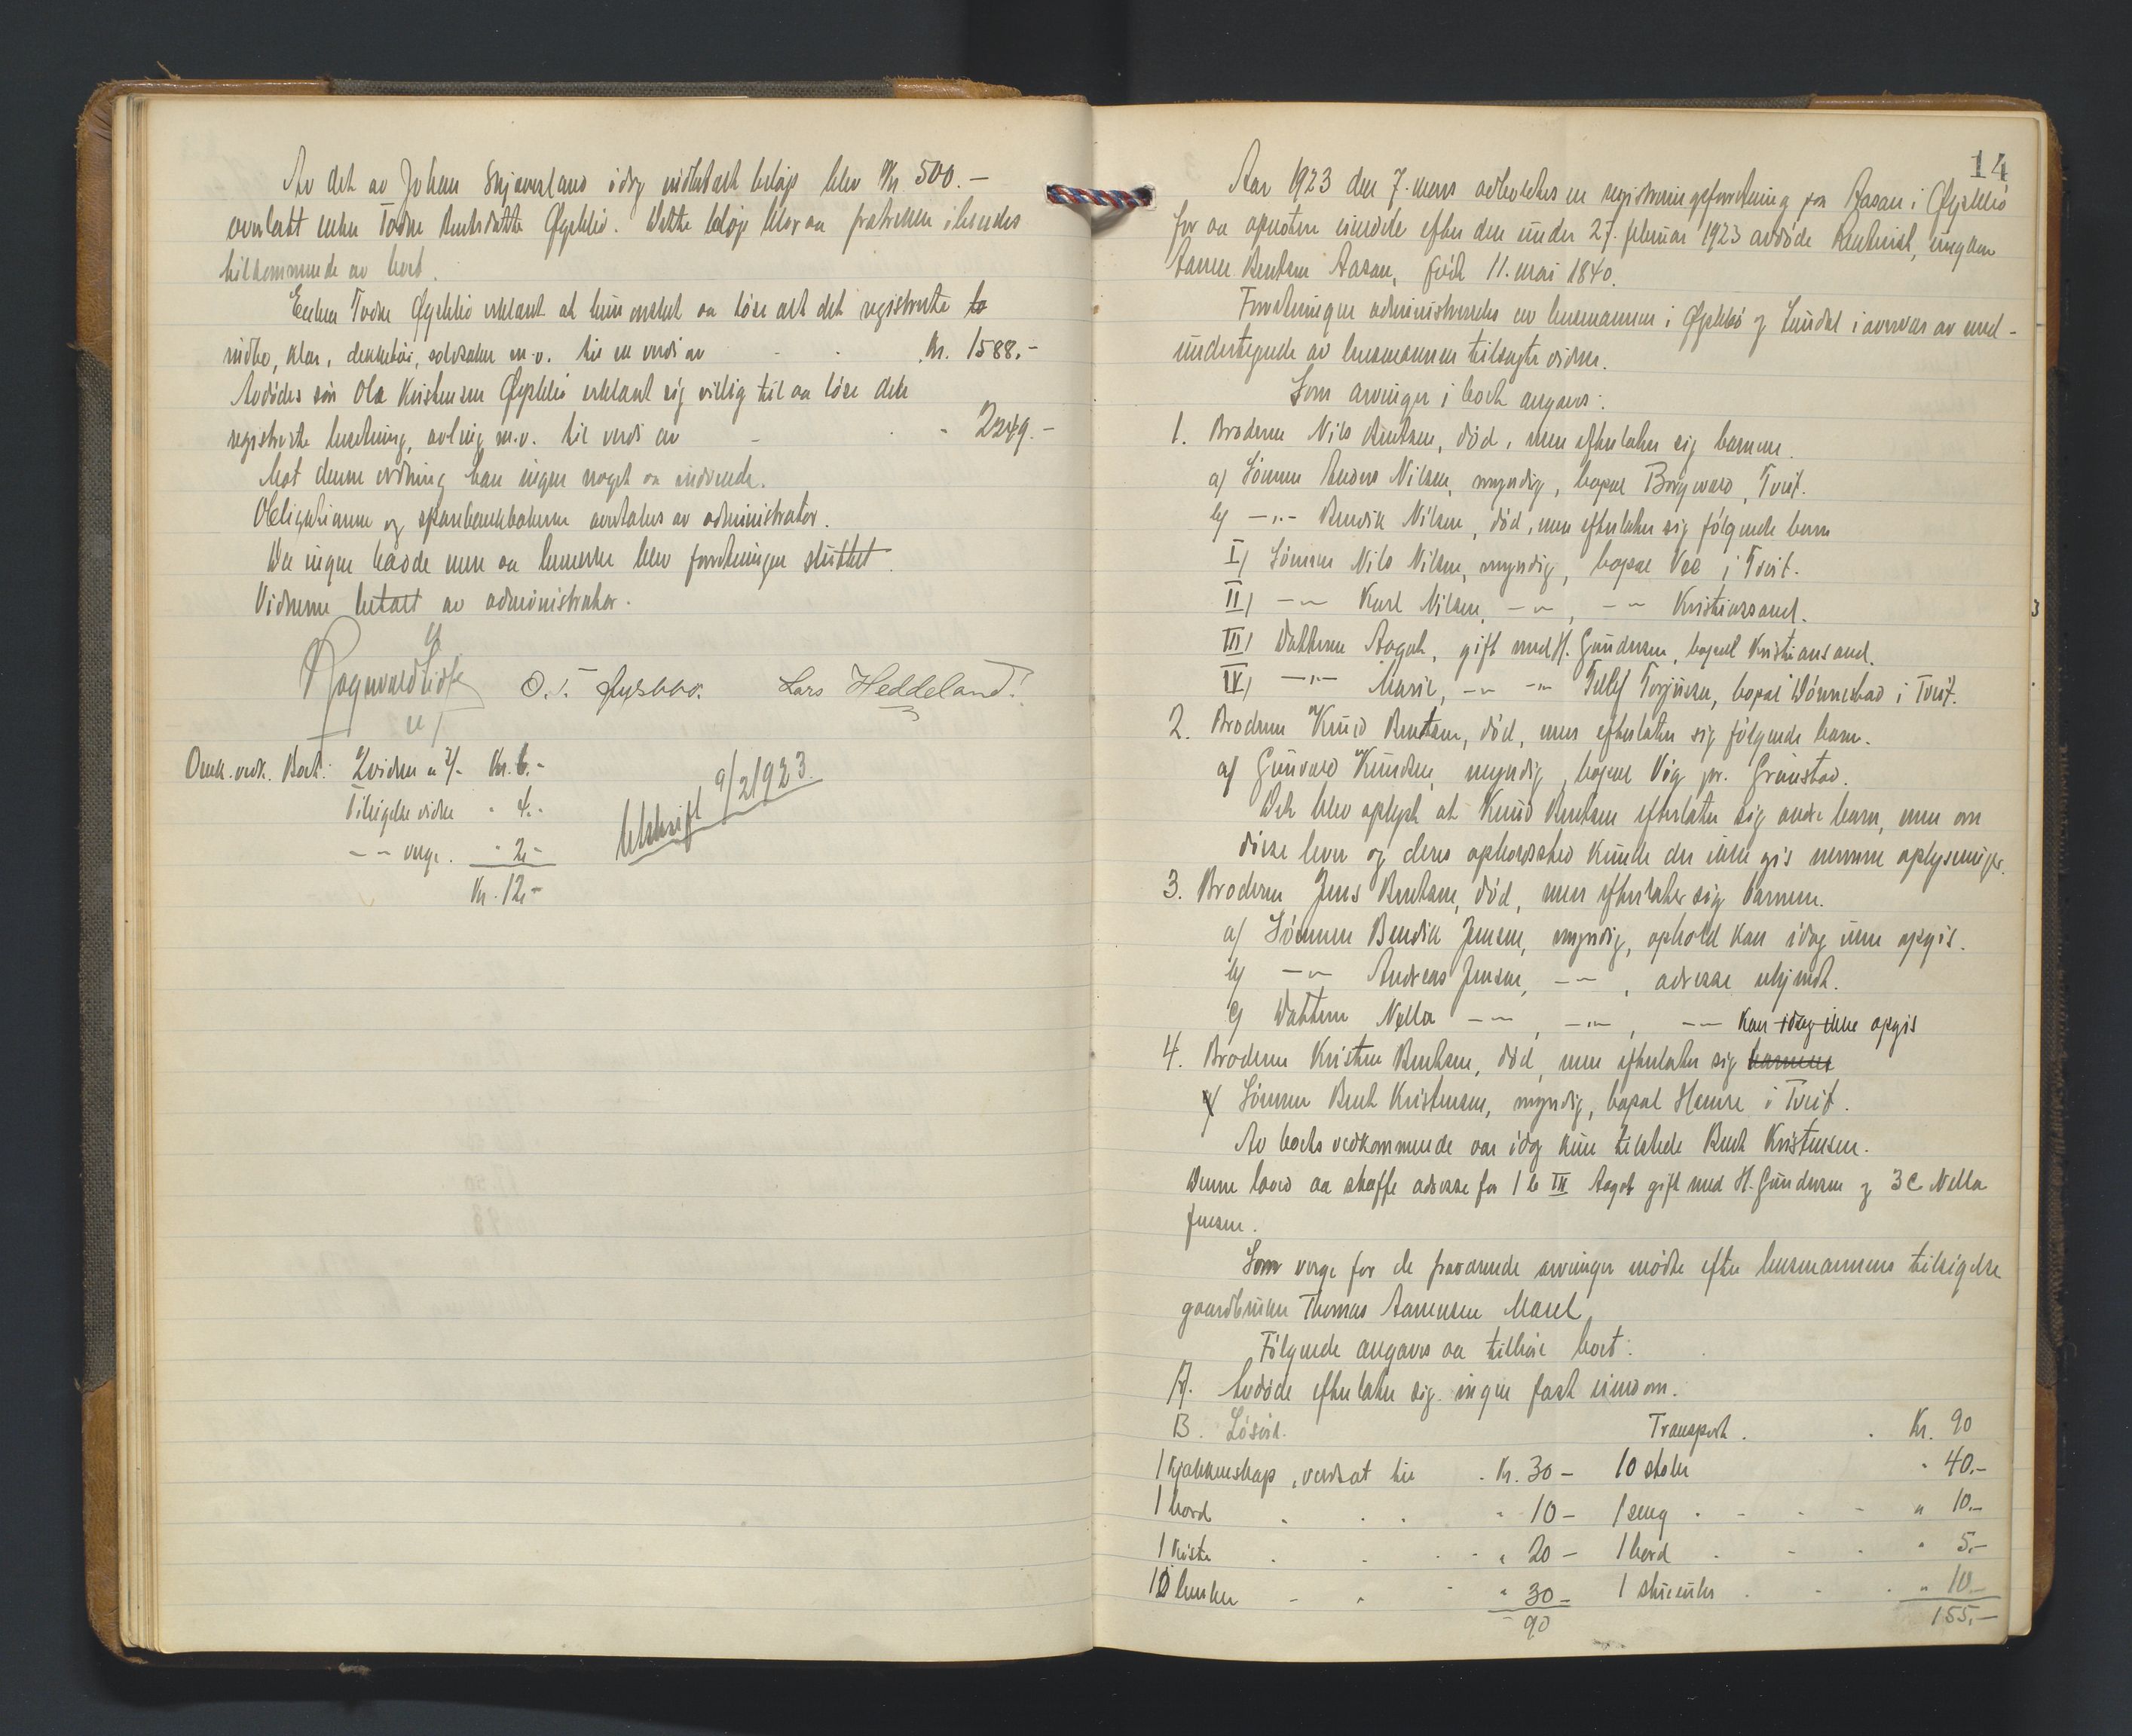 Av det av Johan Skjævesland idag indbetalt beløp blev Kr. 500.-
overlatt enken Todne Bentsdatte Øyslebø. Dette beløp blev aa fratrekke i hendes
tilkommende av boet.
Enken Todne Øyslebø erklært at hun ønsket aa løse alt det registrerte
indbo, klær, dekketøi, sølvsaker m.v. til en verdi av Kr. 1588.-
Avdødes søn Ola Kristensen Øyslebø erklært sig villig til aa løse den
registrerte besetning, avling m.v. til verdi av " 2249.-
Mot denne ordning hav ingen noget aa indvende.
Obligationene og sparebankbøkerne avtales av administrator.
Da ingen havde mere aa bemerke blev forretningen sluttet.
Vidnerne betalt av administrator.
Ragnvald Lidfe O. T. Øyslebø. Lars Heddeland.
Omk. vedk. Boet: 2 vidner a 3/- Kr. 6.-
Tilsigelse vidner " 4.-
- - verge. " 2.-
Kr. 12.-
Utskrift 9/2 1923.
14
Aar 1923 den 7. mars avholdtes en registreringsforretning paa Aasan i Øyslebø
for aa opnotere eiendele efter den under 27. februar 1923 avdøde kaarist, ungkar
Aanen Bentsen Aasan, født 11. mai 1840.
Forretningen administrertes av lensmannen i Øyslebø og Laudal i overvær av med-
undertegnede av lensmannen tilsagte vidner.
Som arvinger i boet angaves:
1. Broderen Nils Bentsen, død, men efterlater sig barnene.
a) Sønnen Anders Nilsen, myndig, bopæl Boywald, Tveit.
b) -"- Bendik Nilsen, død, men efterlater sig følgende barn
I) Sønnen Nils Nilsen, myndig, bopæl Vee i Tveit.
II) -"- Karl Nilsen, -"-, -"- Kristianssand.
III) Datteren Aagot, gift med H. Gundersen, bopæl Kristiansand.
IV) -"- Marie, -"- -"- Tellef Torjusen, bopæl Dønnestad i Tveit.
2. Broderen Knud Bentsen, død, men efterlater sig følgende barn.
a) Gunvald Knudsen, myndig, bopæl Vig pr. Grimstad.
Det blev oplyst at Knud Bentsen efterlater sig andre barn, men om
disse lever og deres opholdssted kunde der ikke gis nærmere oplysninger.
3. Broderen Jens Bentsen, død, men efterlater sig barnene.
a) Sønnen Bendik Jensen, myndig, ophold kan idag ikke opgis.
b) -"- Andreas Jensen, -"-, adresse ukjendt.
c) Datteren Nella -"-, -"-, -"- kan idag ikke opgis
4. Broderen Kristen Bentsen, død, men efterlater sig barnene
a) Sønnen Bent Kristensen, myndig, bopæl Hamre i Tveit.
Av boets vedkommende var idag kun tilstede Bent Kristensen.
Denne loved aa skaffe adresse for 1 b III Aagot gift med H. Gundersen og 3 c Nella
Jensen.
Som verge for de fraværende arvinger mødte efter lensmannens tilsigelse
gaardbruker Thomas Aanensen Masel
Følgende angaves aa tilhøre boet:
A. Avdøde efterlater sig ingen fast eiendom.
B. Løsøre. Transport. Kr. 90
1 kjøkkenskap, verdsat til Kr. 30 - 10 stoler " 40.-
1 bord " 10 - 1 seng " 10.-
1 kiste " 20 - 1 bord " 5.-
10 " 30 - 1 stueuhr " 10.-
90 155.-